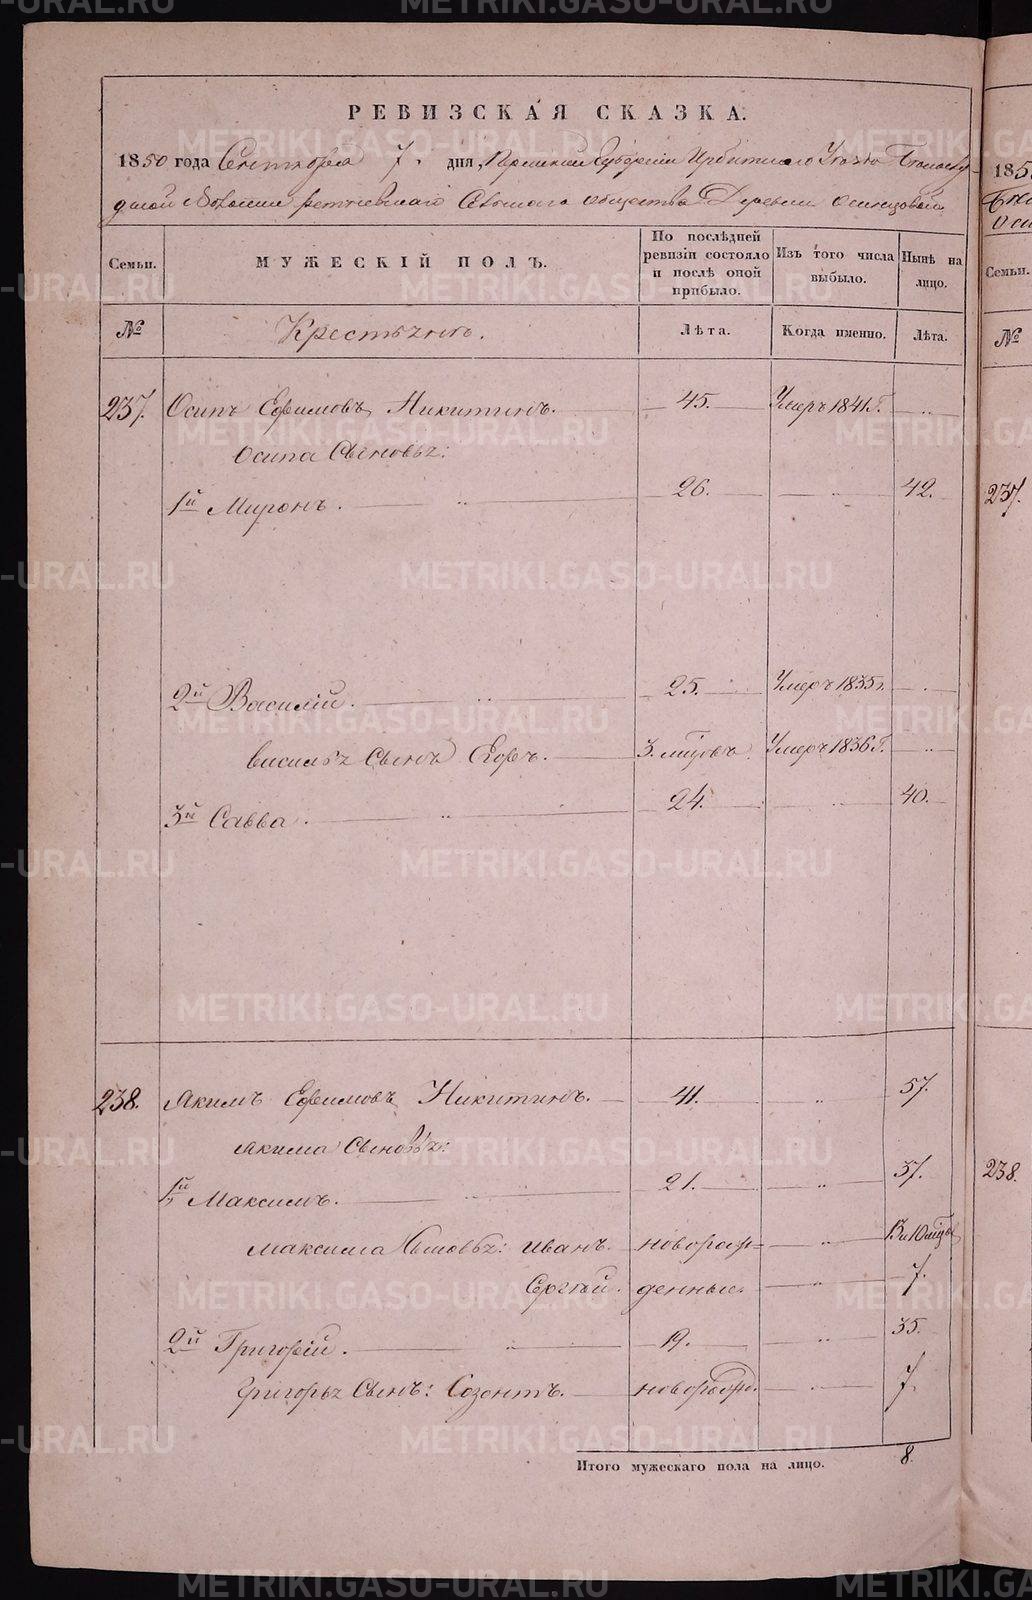 РЕВИЗСКАЯ СКАЗКА.
1850 года Сентября 7. дня, Пермской Губернии Ирбитскаго Уезда Белослу
дской волости Сельскаго общества Деревни Осинцовой
Семьи. МУЖЕСКІЙ ПОЛЪ. По послѣдней ревизіи состояло и послѣ оной прибыло. Изъ того числа выбыло. Нынѣ на лицо.
№ Крестьянъ. Лѣта. Когда именно. Лѣта.
237. Осипъ Ефимовъ Никитинъ. 45. Умеръ 1841 г. ..
Осипа Сыновья:
1й Миронъ. .. 26. .. 42.
2й Василій. .. 25. Умеръ 1835 г. ..
Васильа Сынъ Егоръ. 3. мцовъ. Умеръ 1836 г. ..
3й Савва. .. 24. .. 40.
238. Якимъ Ефимовъ Никитинъ. 41. .. 57.
Якима Сыновья:
1й Максимъ. .. 21. .. 37.
Максима Сыновья: Иванъ. новорож= .. 13 и 10 мцов
Сергѣй. денные. .. 7.
2й Григорій. .. 19. .. 35.
Григорья Сынъ: Созонтъ. новорожд. .. 7.
Итого мужескаго пола на лицо. 8.
185
Семьи.
№
237.
238.
METRIKI.GASO-URAL.RU